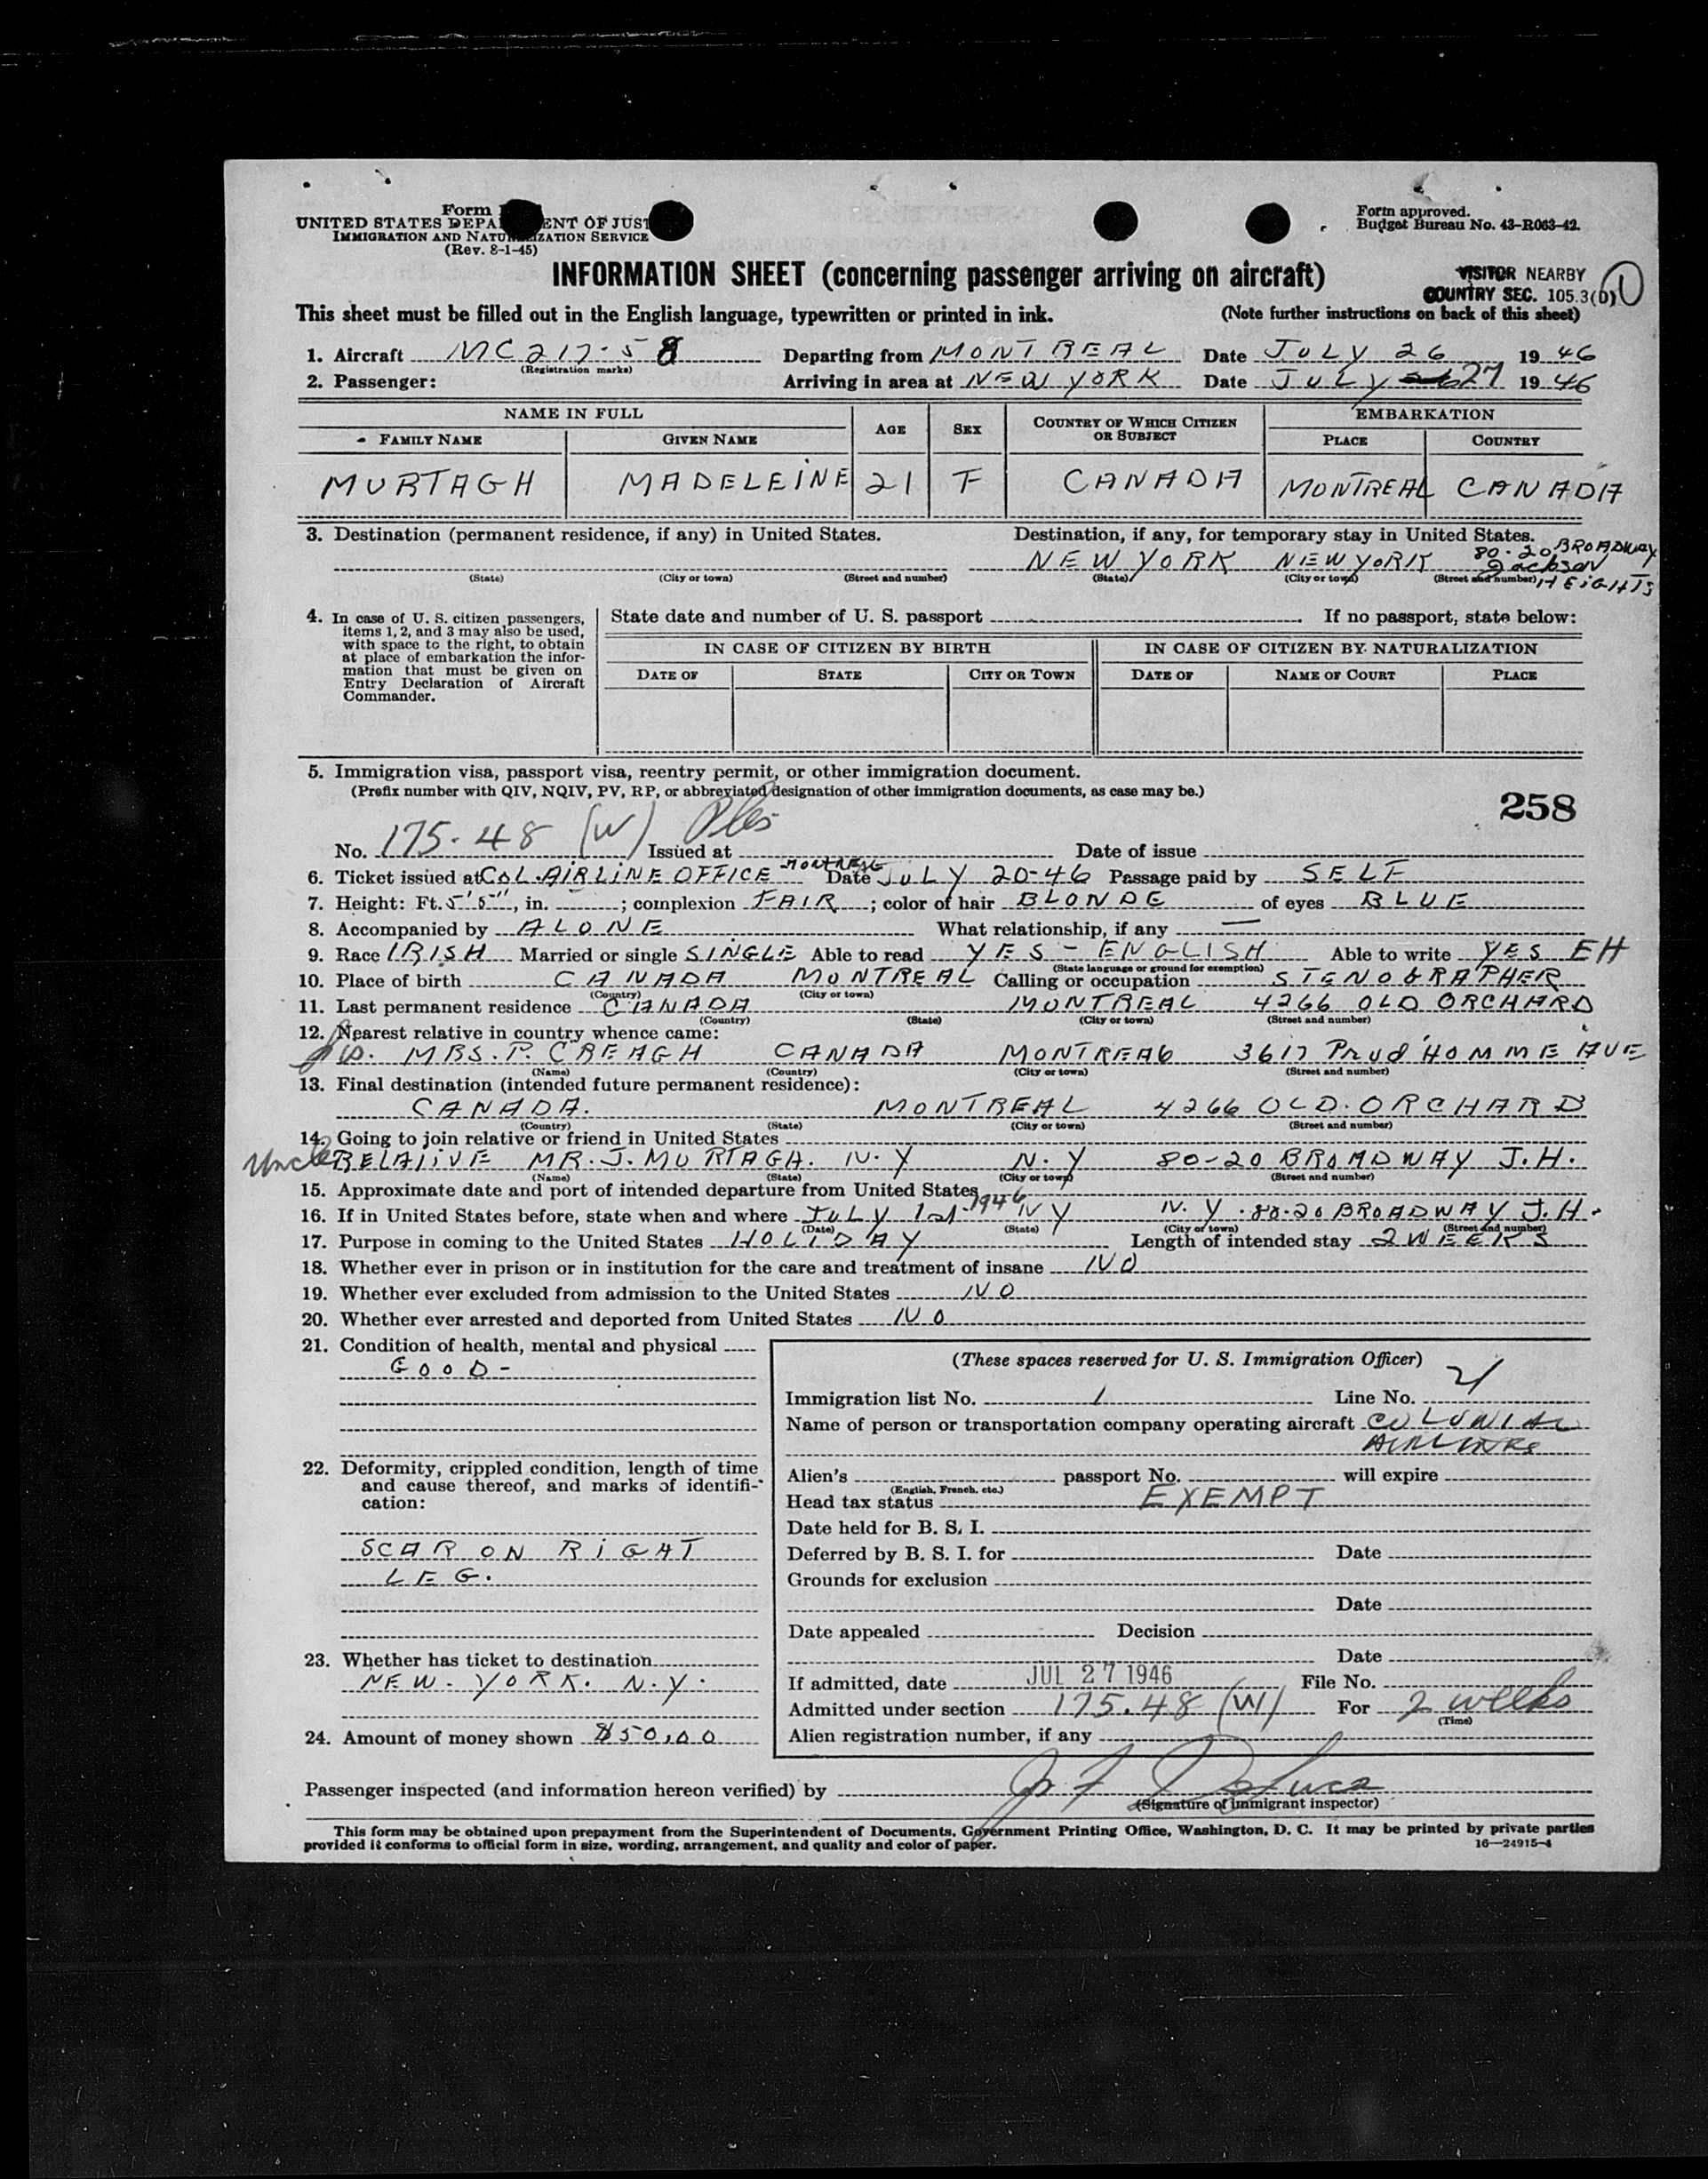 Form
UNITED STATES DEPA ENT OF JUST
IMMIGRATION AND NATURALIZATION SERVICE
(Rev. 8-1-45)
Form approved.
Budget Bureau No. 43-R063-42.
INFORMATION SHEET (concerning passenger arriving on aircraft)
VISITOR NEARBY
COUNTRY SEC. 105.3(D) 1
This sheet must be filled out in the English language, typewritten or printed in ink. (Note further instructions on back of this sheet)
1. Aircraft Departing from MONTREAL Date JULY 26 19 46
(Registration marks)
2. Passenger: Arriving in area at NEW YORK Date JULY 27 19 46
NAME IN FULL AGE SEX COUNTRY OF WHICH CITIZEN OR SUBJECT EMBARKATION
FAMILY NAME GIVEN NAME PLACE COUNTRY
MURTAGH MADELEINE 21 F CANADA MONTREAL CANADA
3. Destination (permanent residence, if any) in United States. Destination, if any, for temporary stay in United States.
NEW YORK NEW YORK 80-20 BROADWAY Jackson HEIGHTS
(State) (City or town) (Street and number) (State) (City or town) (Street and number)
4. In case of U. S. citizen passengers, items 1, 2, and 3 may also be used, with space to the right, to obtain at place of embarkation the information that must be given on Entry Declaration of Aircraft Commander.
State date and number of U. S. passport If no passport, state below:
IN CASE OF CITIZEN BY BIRTH IN CASE OF CITIZEN BY NATURALIZATION
DATE OF STATE CITY OR TOWN DATE OF NAME OF COURT PLACE
5. Immigration visa, passport visa, reentry permit, or other immigration document.
(Prefix number with QIV, NQIV, PV, RP, or abbreviated designation of other immigration documents, as case may be.)
258
No. 175-48 (W) Issued at Date of issue
6. Ticket issued at COL. AIRLINE OFFICE MONTREAL Date JULY 20-46 Passage paid by SELF
7. Height: Ft. 5'5", in. ; complexion FAIR ; color of hair BLONDE of eyes BLUE
8. Accompanied by ALONE What relationship, if any —
9. Race IRISH Married or single SINGLE Able to read YES - ENGLISH Able to write YES EH
(State language or ground for exemption)
10. Place of birth CANADA MONTREAL Calling or occupation STENOGRAPHER
(Country) (City or town)
11. Last permanent residence CANADA MONTREAL 4266 OLD ORCHARD
(Country) (State) (City or town) (Street and number)
12. Nearest relative in country whence came:
MRS. P. CREAGH CANADA MONTREAL 3617 Prud'HOMME AVE
(Name) (Country) (City or town) (Street and number)
13. Final destination (intended future permanent residence):
CANADA. MONTREAL 4266 OLD. ORCHARD
(Country) (State) (City or town) (Street and number)
14. Going to join relative or friend in United States
Uncle RELATIVE MR. J. MURTAGH. N.Y N.Y 80-20 BROADWAY J.H.
(Name) (State) (City or town) (Street and number)
15. Approximate date and port of intended departure from United States
16. If in United States before, state when and where JULY 1st 1946 NY N.Y. 80-20 BROADWAY J.H.
(Date) (State) (City or town) (Street and number)
17. Purpose in coming to the United States HOLIDAY Length of intended stay 2 WEEKS
18. Whether ever in prison or in institution for the care and treatment of insane NO
19. Whether ever excluded from admission to the United States NO
20. Whether ever arrested and deported from United States NO
21. Condition of health, mental and physical
GOOD -
22. Deformity, crippled condition, length of time and cause thereof, and marks of identification:
SCAR ON RIGHT
LEG.
23. Whether has ticket to destination
NEW. YORK. N.Y.
24. Amount of money shown $50.00
(These spaces reserved for U. S. Immigration Officer)
Immigration list No. 1 Line No.
Name of person or transportation company operating aircraft COLONIAL
AIRLINES
Alien's passport No. will expire
(English, French, etc.)
Head tax status EXEMPT
Date held for B. S. I.
Deferred by B. S. I. for Date
Grounds for exclusion
Date
Date appealed Decision
Date
If admitted, date JUL 27 1946 File No.
Admitted under section 175.48 (W) For 2 weeks
(Time)
Alien registration number, if any
Passenger inspected (and information hereon verified) by
(Signature of immigrant inspector)
This form may be obtained upon prepayment from the Superintendent of Documents, Government Printing Office, Washington, D. C. It may be printed by private parties
provided it conforms to official form in size, wording, arrangement, and quality and color of paper. 16—24915-4